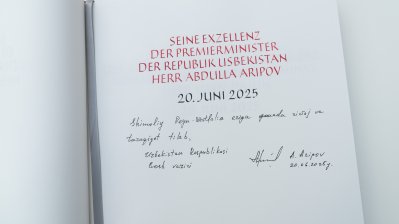 SEINE EXZELLENZ
DER PREMIERMINISTER
DER REPUBLIK USBEKISTAN
HERR ABDULLA ARIPOV
20. JUNI 2025
Shimoliy Reyn-Vestfalia eriga yanada rivoj va
taraqqiyot tilab,
Uzbekiston Respublikasi
Bosh vaziri
A. Aripov
20.06.2025y.